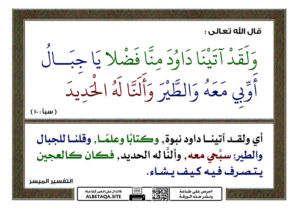 قال الله تعالى :
وَلَقَدْ آتَيْنَا دَاوُدَ مِنَّا فَضْلًا يَا جِبَالُ
أَوِّبِي مَعَهُ وَالطَّيْرَ وَأَلَنَّا لَهُ الْحَدِيدَ
( سبأ : ١٠ )
أي ولقد آتينا داود نبوة, وكتابًا وعلمًا, وقلنا للجبال
والطير: سبِّحي معه, وألنَّا له الحديد, فكان كالعجين
يتصرف فيه كيف يشاء.
التفسير الميسر
ALBETAQA.SITE
احرص على طباعة
ونشر هذه الورقة